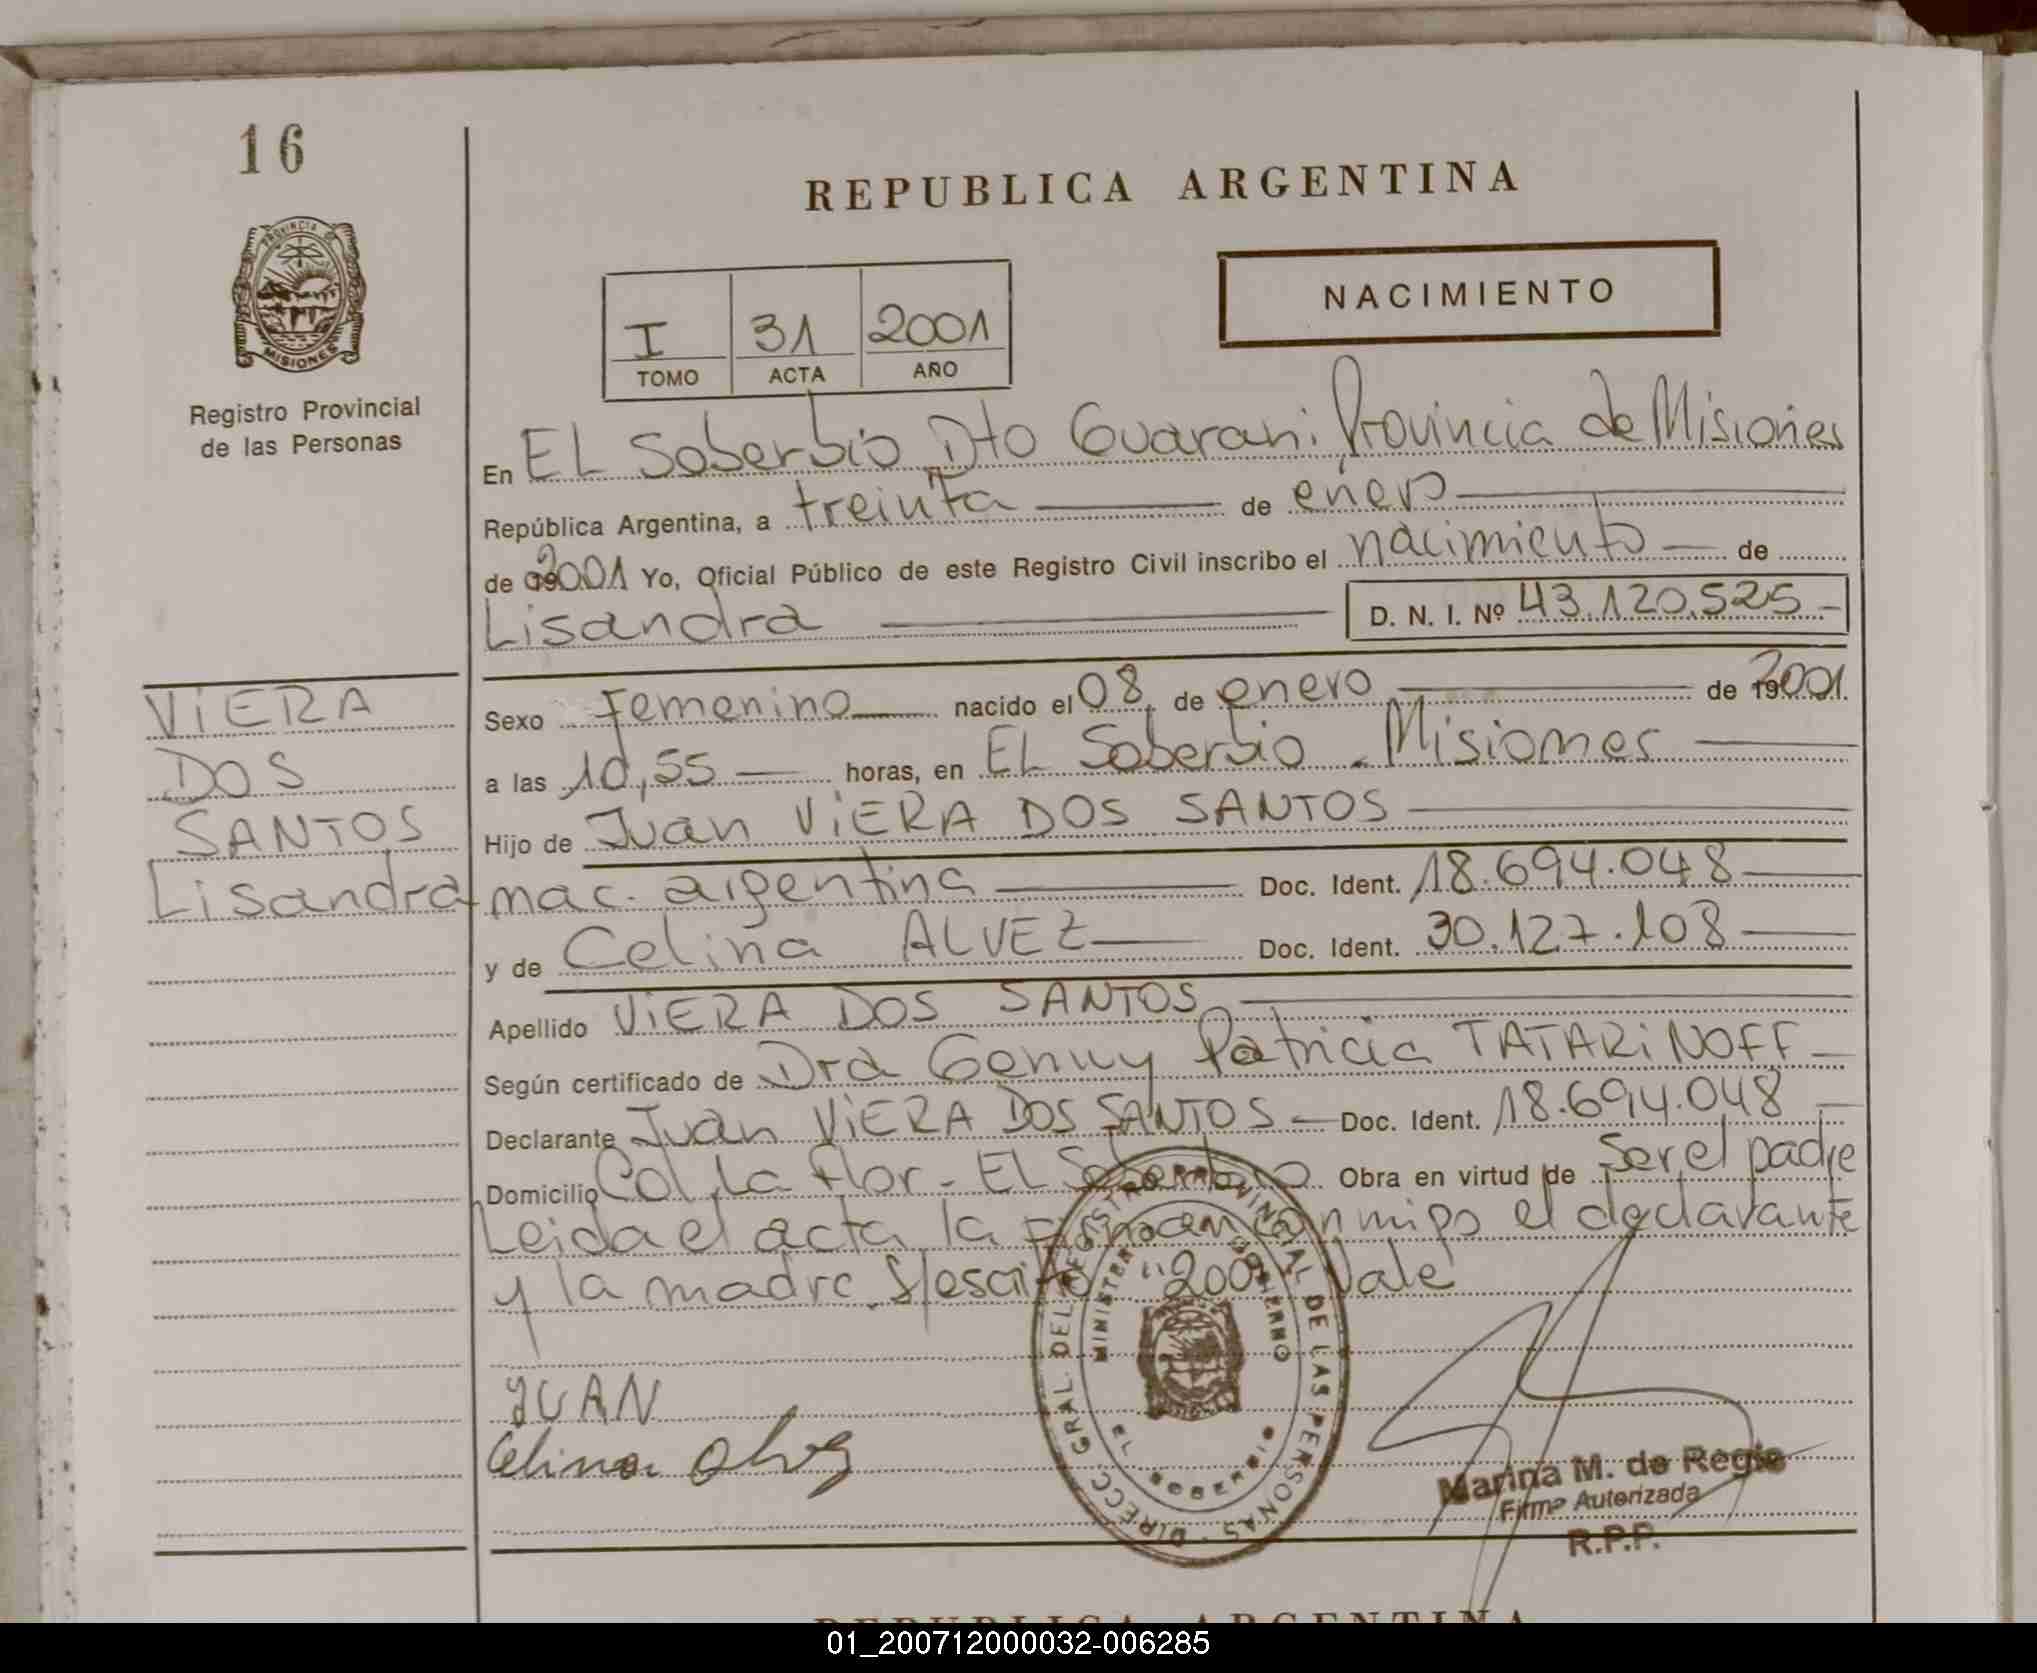 16
REPUBLICA ARGENTINA
PROVINCIA DE
MISIONES
Registro Provincial
de las Personas
I 31 2001
TOMO ACTA AÑO
NACIMIENTO
En EL Soberbio Dto Guarani Provincia de Misiones
República Argentina, a treinta de enero
de 2001 Yo, Oficial Público de este Registro Civil inscribo el nacimiento de
Lisandra D. N. I. Nº 43.120.525
VIERA
DOS
SANTOS
Lisandra
Sexo Femenino nacido el 08 de enero de 2001
a las 10,55 horas, en EL Soberbio - Misiones
Hijo de Juan VIERA DOS SANTOS
nac. argentina Doc. Ident. 18.694.048
y de Celina ALVEZ Doc. Ident. 30.127.108
Apellido VIERA DOS SANTOS
Según certificado de Dra Genny Patricia TATARINOFF
Declarante Juan VIERA DOS SANTOS Doc. Ident. 18.694.048
Domicilio Col. La Flor - EL Soberbio Obra en virtud de Ser el padre
Leida el acta la firman conmigo el declarante
y la madre. S/escrito "2001" Vale
JUAN
Celina Alvez
DIRECC. GRAL. DEL REGISTRO PROVINCIAL DE LAS PERSONAS
MINISTERIO GOBIERNO
EL SOBERBIO
Marina M. de Regio
Firma Autorizada
R.P.P.
REPUBLICA ARGENTINA
01_200712000032-006285